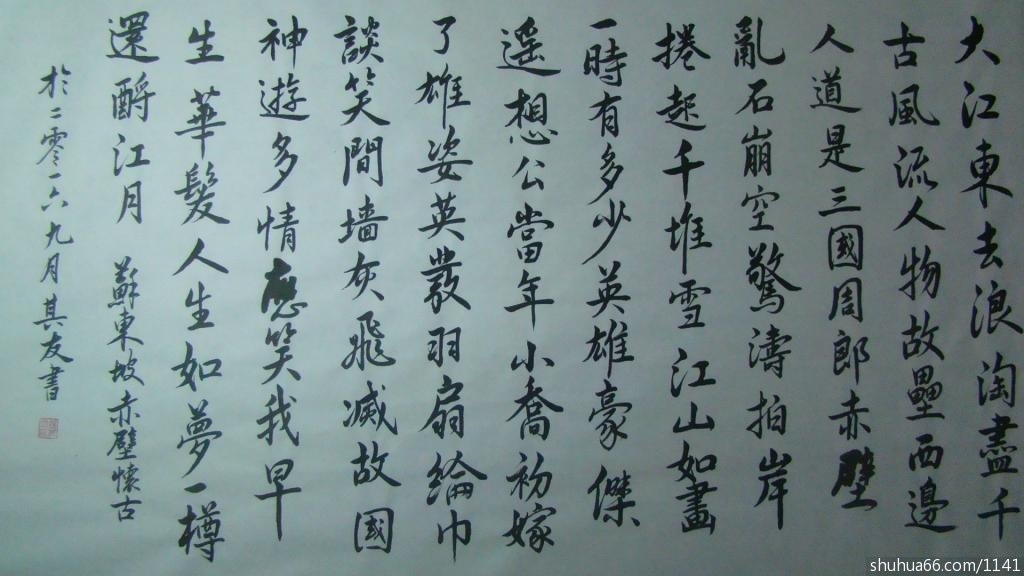 大江東去浪淘盡千
古風流人物故壘西邊
人道是三國周郎赤壁
亂石崩空驚濤拍岸
捲起千堆雪江山如畫
一時有多少英雄豪傑
遥想公當年小喬初嫁
了雄姿英發羽扇綸巾
談笑間墙灰飛滅故國
神遊多情應笑我早
生華髮人生如夢一樽
還酹江月 蘇東坡赤壁懷古
於二零一六九月其友書
shuhua66.com/1141